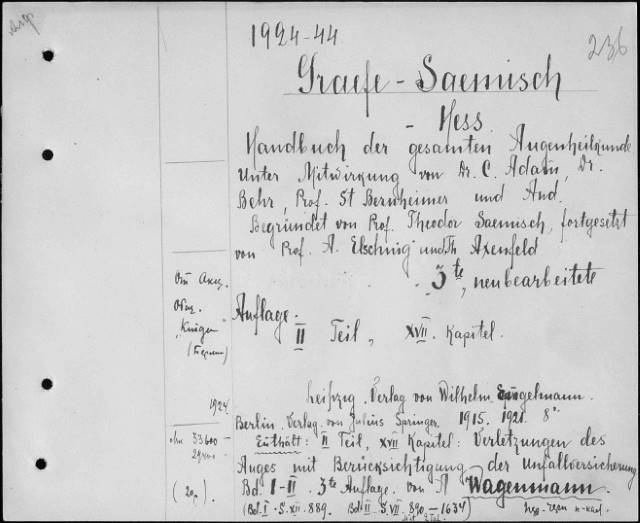 1924-44
236
Graefe-Saemisch
- Hess.
Handbuch der gesamten Augenheilkunde
Unter Mitwirkung von Dr. C. Adam, Dr.
Behr, Prof. St Bernheimer und And.
Begründet von Prof. Theodor Saemisch, fortgesetzt
von Prof. A. Elschnig und Th Axenfeld
3te, neubearbeitete
Auflage.
II Teil, XVII. Kapitel.
От Акц.
Общ.
"Книга"
(Берлин)
Leipzig. Verlag von Wilhelm Engelmann.
1924
Berlin. Verlag von Julius Springer. 1915. 1921. 8°
Enthält: II Teil, XVII Kapitel: Verletzungen des
33600-
Auges mit Berücksichtigung der Unfallversicherung
Bd. I-II. 3te Auflage. von A Wagenmann.
(Bd. I. S. XII. 889. Bd. II. S. VII. 890-1634)